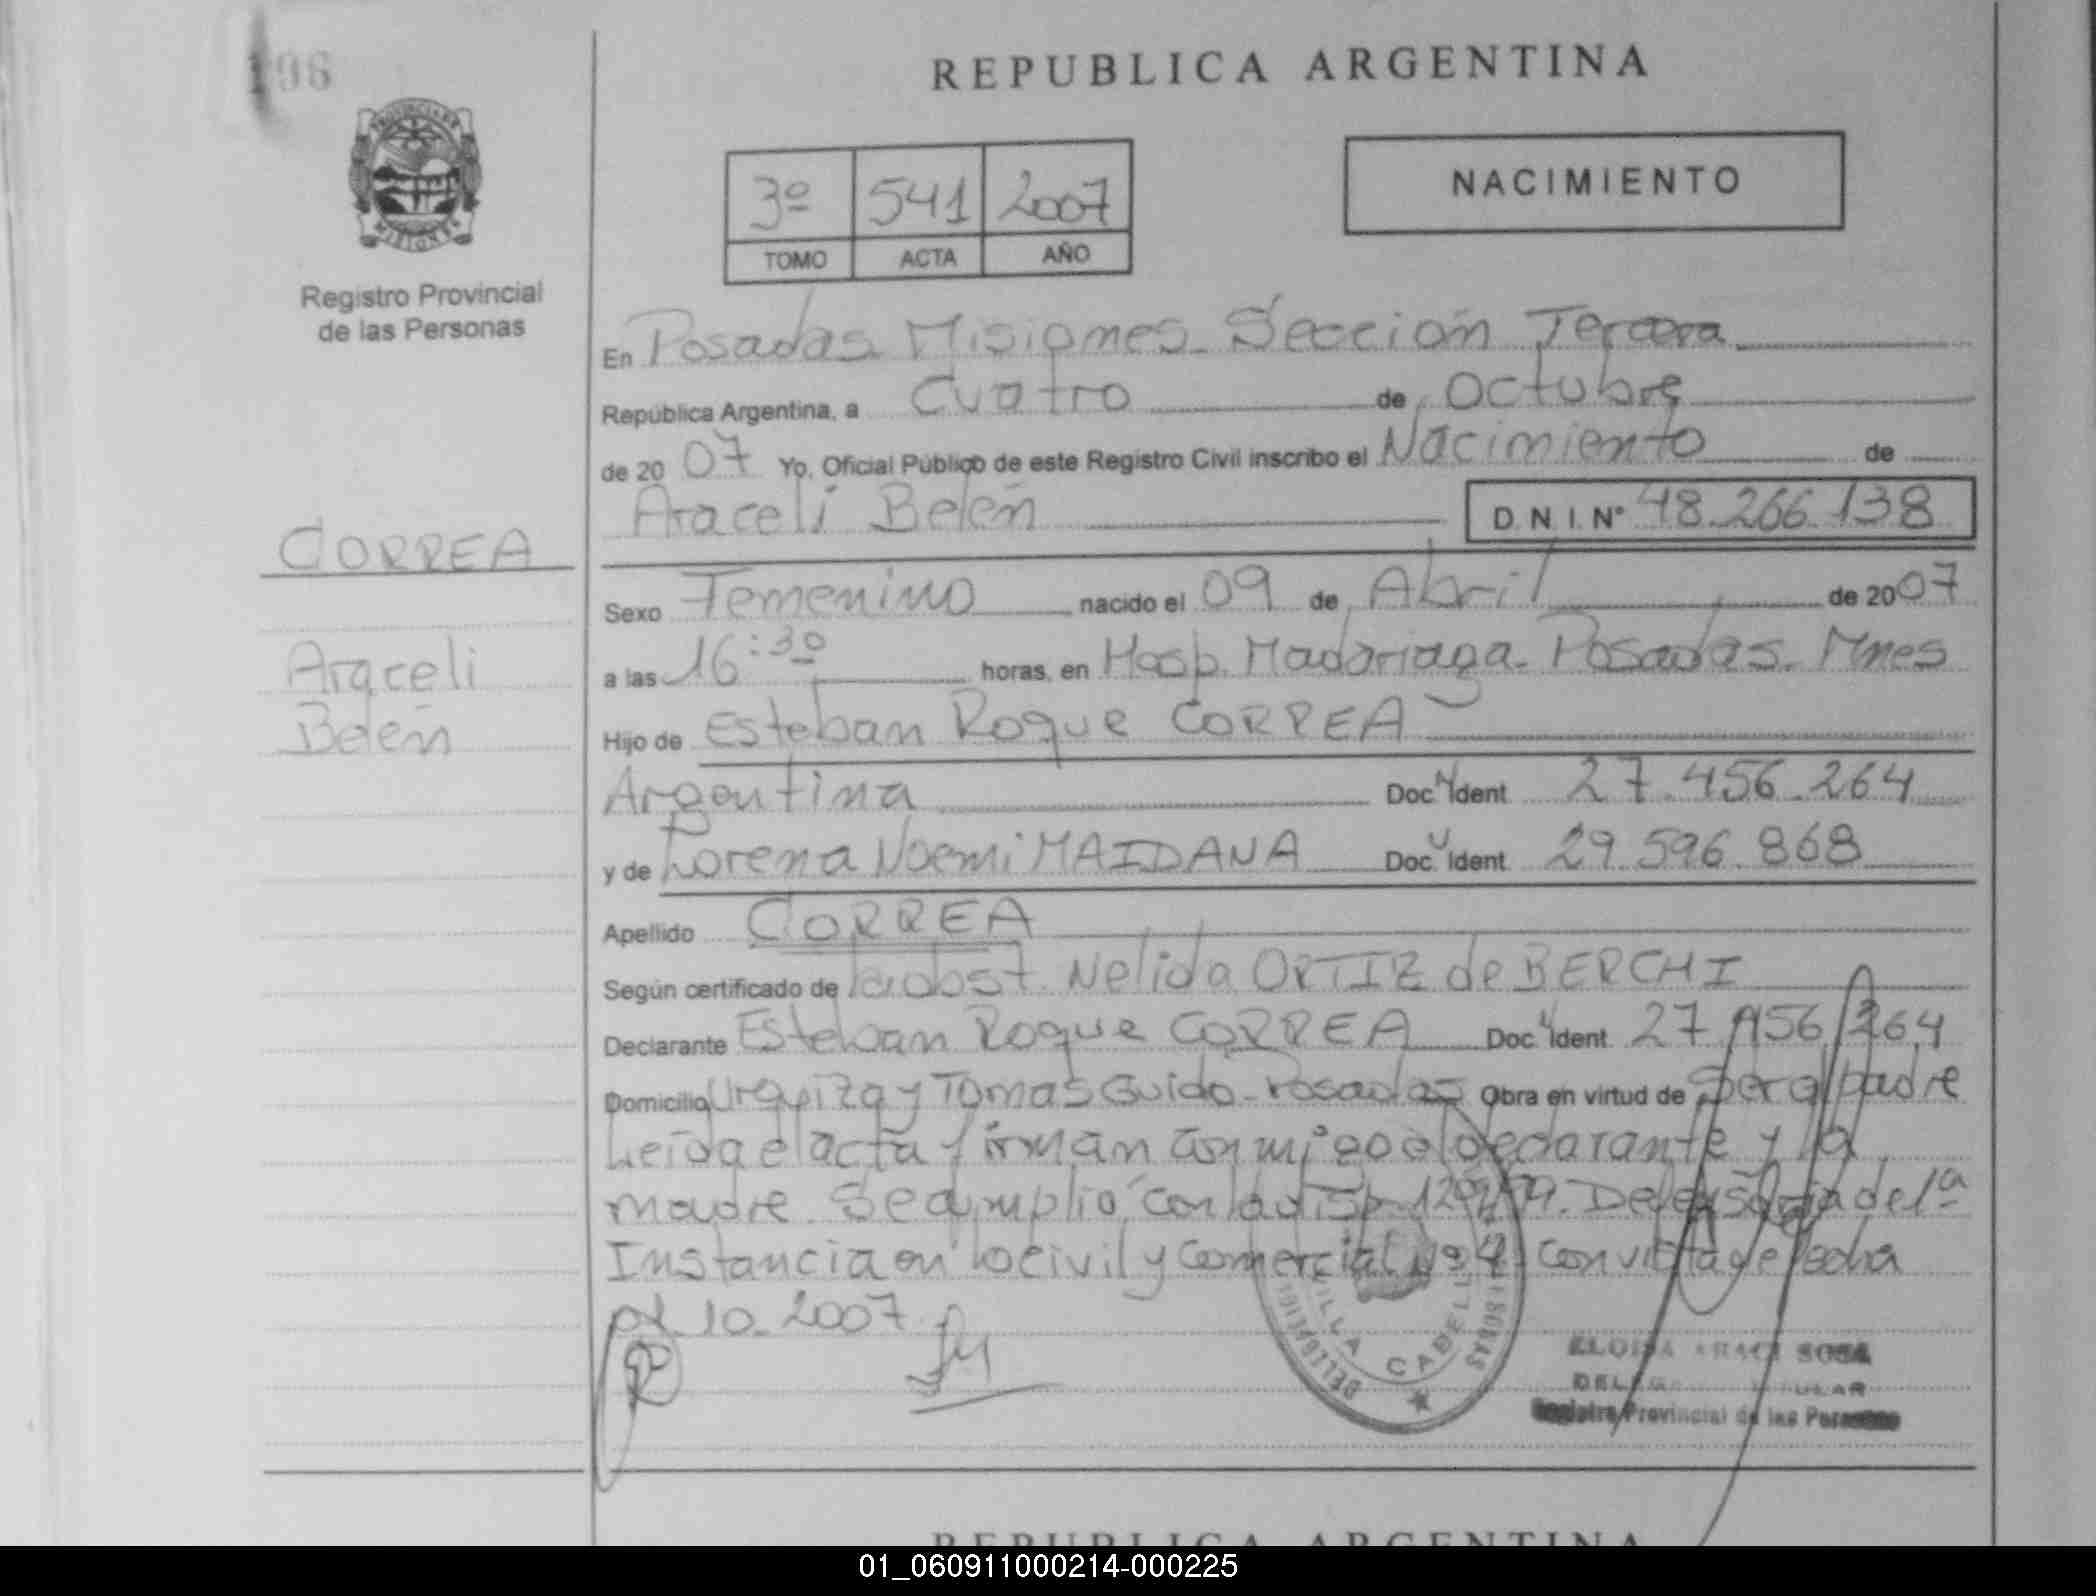 196
REPUBLICA ARGENTINA
PROVINCIA DE
MISIONES
Registro Provincial
de las Personas
3º 541 2007
TOMO ACTA AÑO
NACIMIENTO
En Posadas Misiones Sección Tercera
República Argentina, a Cuatro de Octubre
de 2007 Yo, Oficial Público de este Registro Civil inscribo el Nacimiento de
Araceli Belén D.N.I. Nº 48.266.138
CORREA
Araceli
Belén
Sexo Femenino nacido el 09 de Abril de 2007
a las 16:30 horas, en Hosp. Madariaga. Posadas. Mnes
Hijo de Esteban Roque CORREA
Argentina Doc. Ident 27.456.264
y de Lorena Noemi MAIDANA Doc. Ident 29.596.868
Apellido CORREA
Según certificado de Nelida ORTIZ de BERCHI
Declarante Esteban Roque CORREA Doc. Ident. 27.456.264
Domicilio Urquiza y Tomas Guido - Posadas Obra en virtud de Ser el padre
Leída el acta firman conmigo el declarante y la
madre. Se cumplió con la disp. Defensoría de 1ª
Instancia en lo Civil y Comercial Nº 4 con vista de fecha
10.2007
VILLA CABELLO
ELOISA SOSA
DELEGADA TITULAR
Registro Provincial de las Personas
REPUBLICA ARGENTINA
01_060911000214-000225